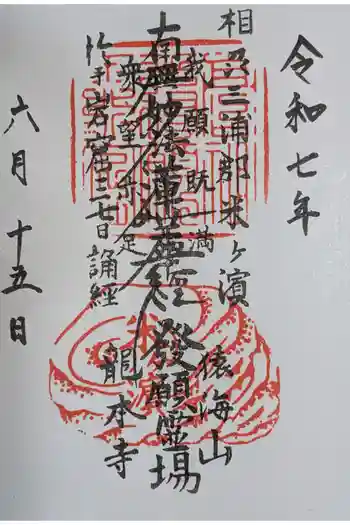 令和七年
相乃三浦郡米ヶ濱
猿海山
我願既一満
南無妙法蓮華経
發願霊場
衆望亦足
龍本寺
於岩窟三七日誦経
六月十五日